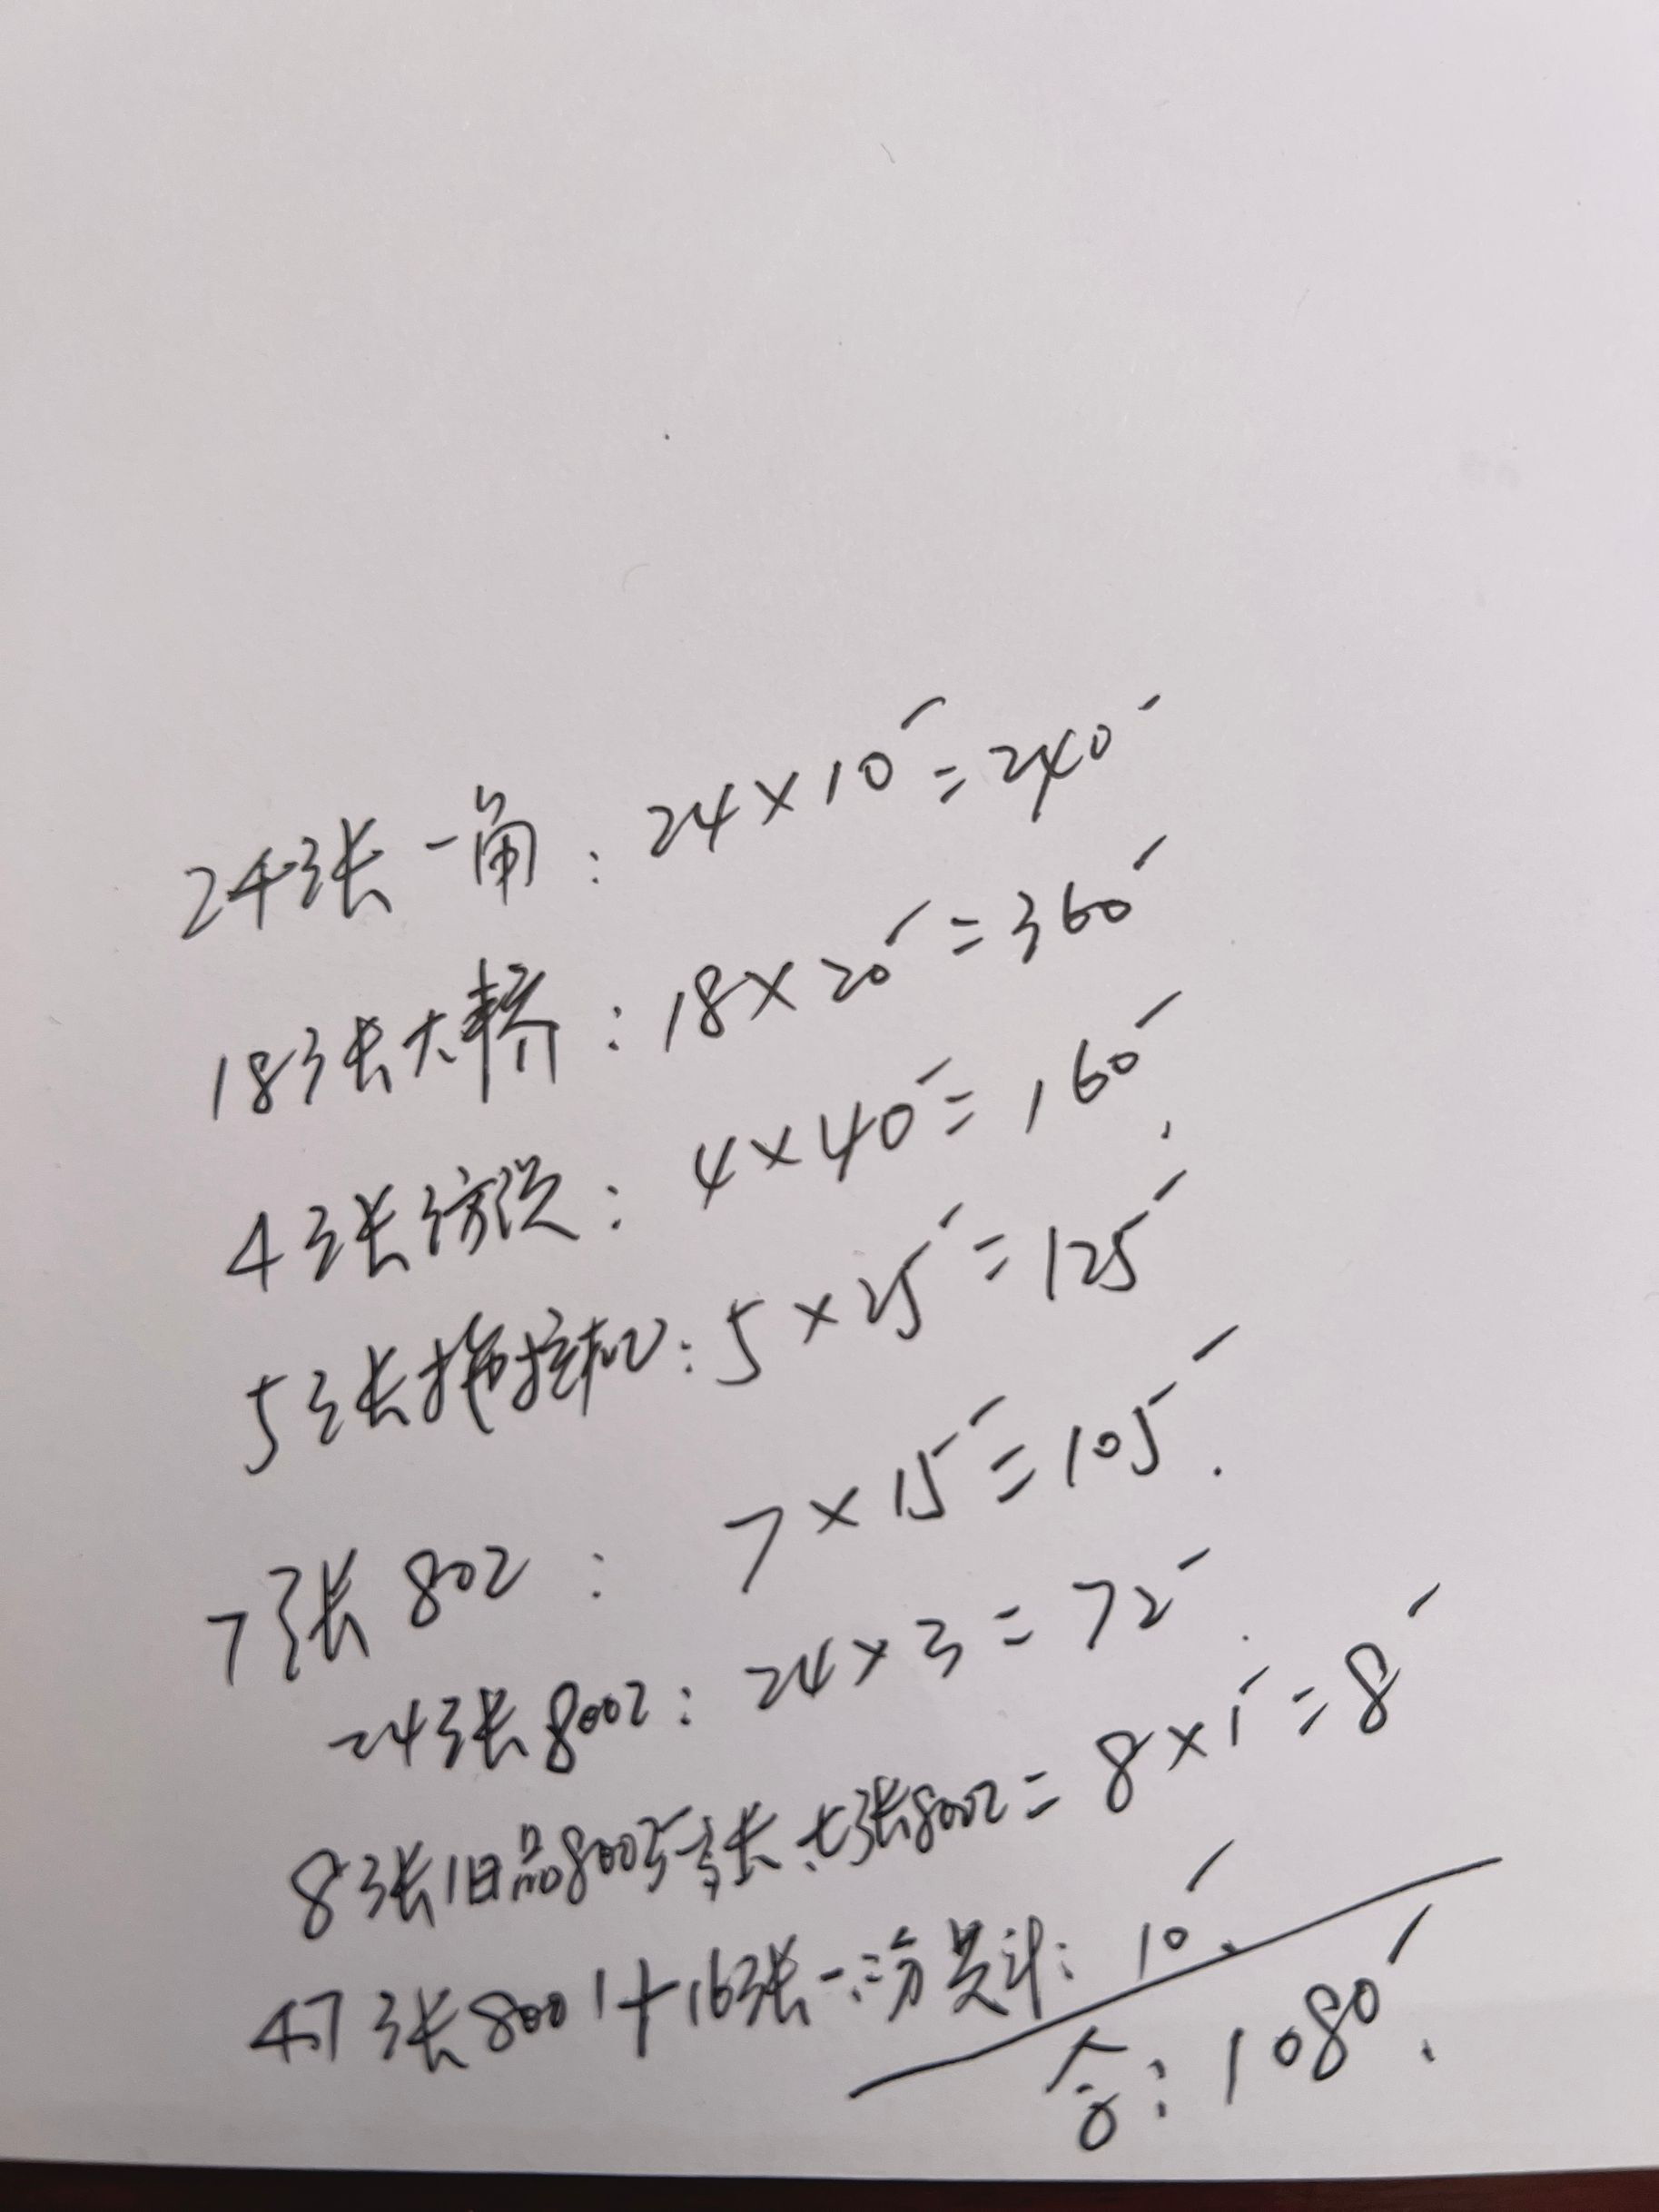 24张一角:24×10=240
18张大轿:18×20=360
4张纺织:4×40=160
5张拖拉机:5×25=125
7张802:7×15=105
24张8002:24×3=72
8张旧品8005壹张、七张8002=8×1=8
47张8001+16张一、二分共计:10
合:1080